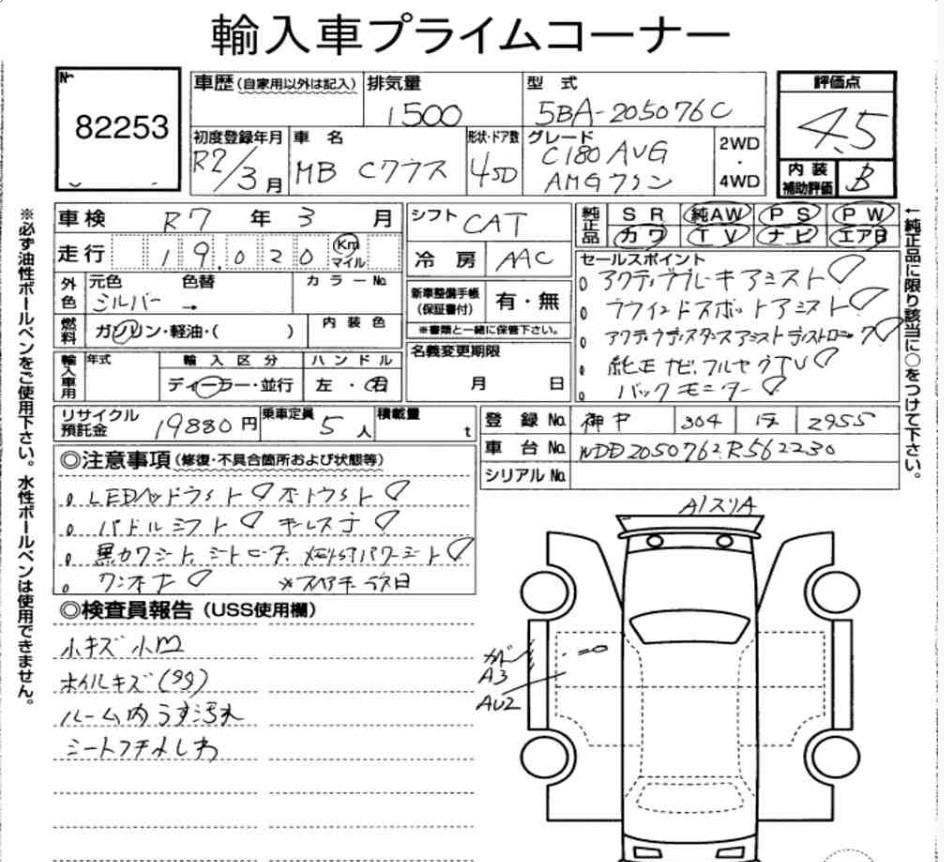 輸入車プライムコーナー
№
82253
車歴(自家用以外は記入)
排気量
1500
型式
5BA-205076C
評価点
4.5
初度登録年月
R2/3月
車名
MB Cクラス
形状・ドア数
4SD
グレード
C180 AVG
AMGライン
2WD
・
4WD
内装
補助評価
B
車検 R7年3月
シフト CAT
純正品
SR 純AW PS PW
カワ TV ナビ エアB
走行 19,020 Km マイル
冷房 AAC
外色
元色 色替 カラーNo.
シルバー →
新車整備手帳
(保証書付)
有・無
※書類と一緒に保管下さい。
セールスポイント
アクティブブレーキアシスト
ブラインドスポットアシスト
アクティブディスタンスアシストディストロニック
純正ナビ、フルセグTV
バックモニター
燃料 ガソリン・軽油・( ) 内装色
輸入車用
年式 輸入区分 ハンドル
ディーラー・並行 左・右
名義変更期限
月 日
リサイクル
預託金
19880円
乗車定員 5人
積載量 t
登録No.
304 2955
車台No. WDD2050762R562230
シリアルNo.
◎注意事項(修復・不具合箇所および状態等)
LEDヘッドライト オートライト
パドルシフト キーレスゴー
黒カワシート、シートヒーター、メモリ付パワーシート
ワンオーナー
◎検査員報告(USS使用欄)
小キズ小凹
ホイルキズ
ルーム内うす汚れ
シートフチよしわ
A1スリA
A3
AU2
※必ず油性ボールペンをご使用下さい。水性ボールペンは使用できません。
←純正品に限り該当に○をつけて下さい。